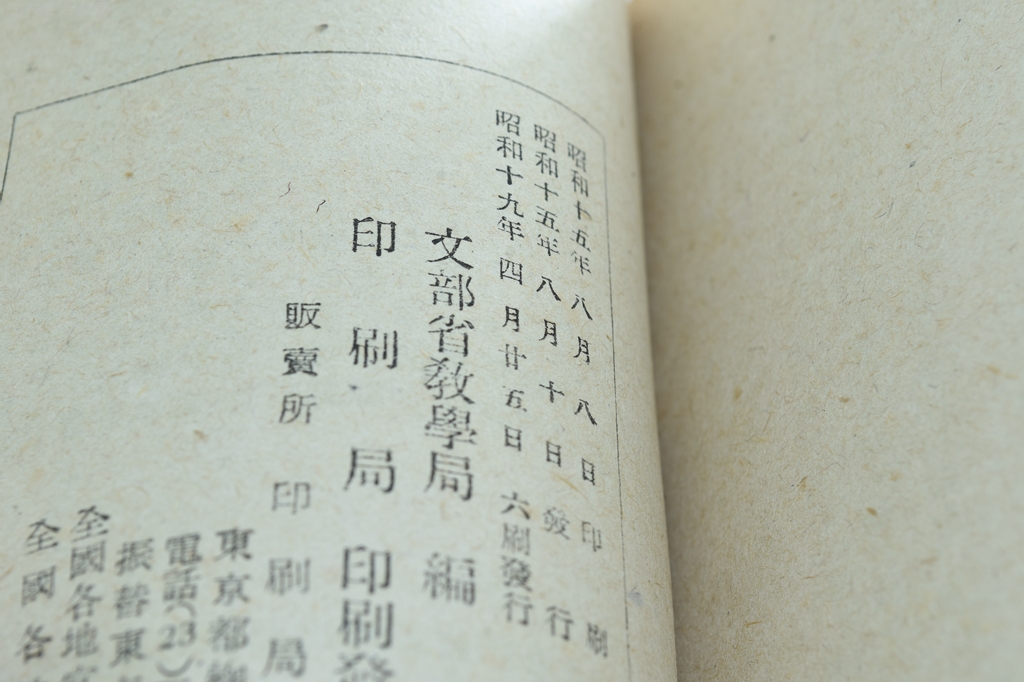 昭和十五年八月八日印刷
昭和十五年八月十日發行
昭和十九年四月廿五日六刷發行
文部省教學局編
印刷局印刷發
販賣所印刷局
東京都
電話(23)
振替東
全國各地
全國各